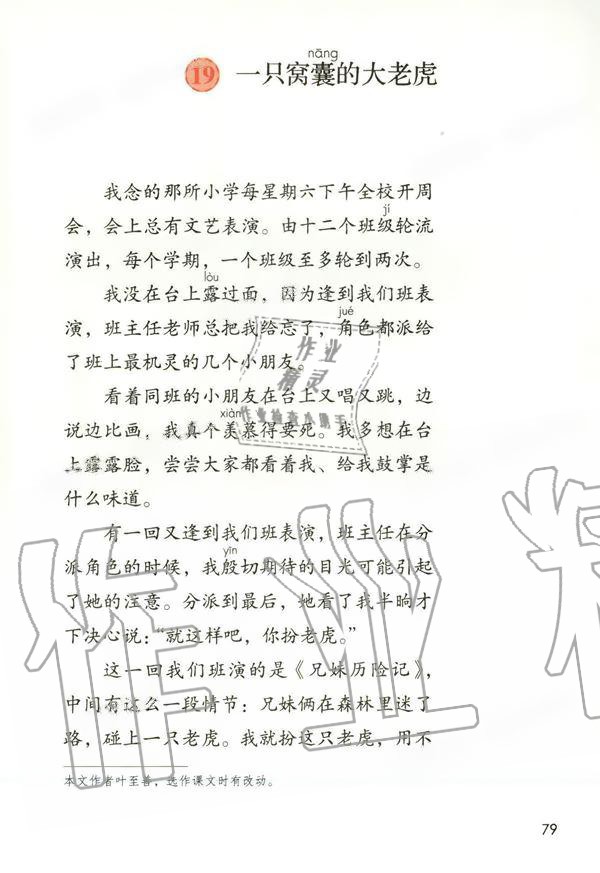 nāng
19 一只窝囊的大老虎
我念的那所小学每星期六下午全校开周
jí
会，会上总有文艺表演。由十二个班级轮流
演出，每个学期，一个班级至多轮到两次。
lòu
我没在台上露过面，因为逢到我们班表
jué
演，班主任老师总把我给忘了，角色都派给
了班上最机灵的几个小朋友。
看着同班的小朋友在台上又唱又跳，边
xiàn
说边比画，我真个羡慕得要死。我多想在台
上露露脸，尝尝大家都看着我、给我鼓掌是
什么味道。
有一回又逢到我们班表演，班主任在分
yīn
派角色的时候，我殷切期待的目光可能引起
了她的注意。分派到最后，她看了我半晌才
下决心说：“就这样吧，你扮老虎。”
这一回我们班演的是《兄妹历险记》，
中间有这么一段情节：兄妹俩在森林里迷了
路，碰上一只老虎。我就扮这只老虎，用不
本文作者叶至善，选作课文时有改动。
79
作业
精灵
作业检查小助手
作业精